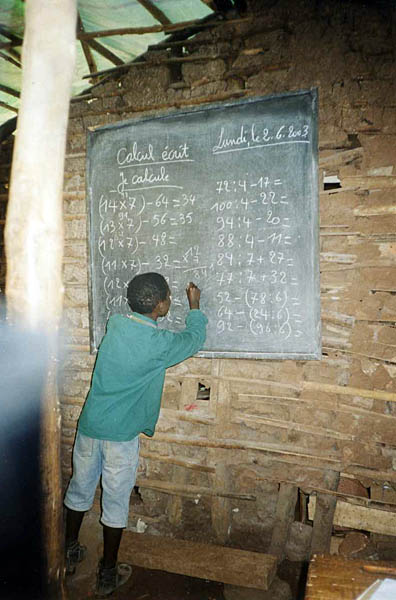 Calcul écrit
Lundi, le 2.6.2003
Je calcule
(14×7)-64=34
91
(13×7)-56=35
(12×7)-48=
(11×7)-32=
(12×
(11×
×12
7
84
72:4-17=
100:4-22=
94:4-20=
88:4-11=
84:7+27=
77:7+32=
52-(78:6)=
64-(24:6)=
92-(96:6)=